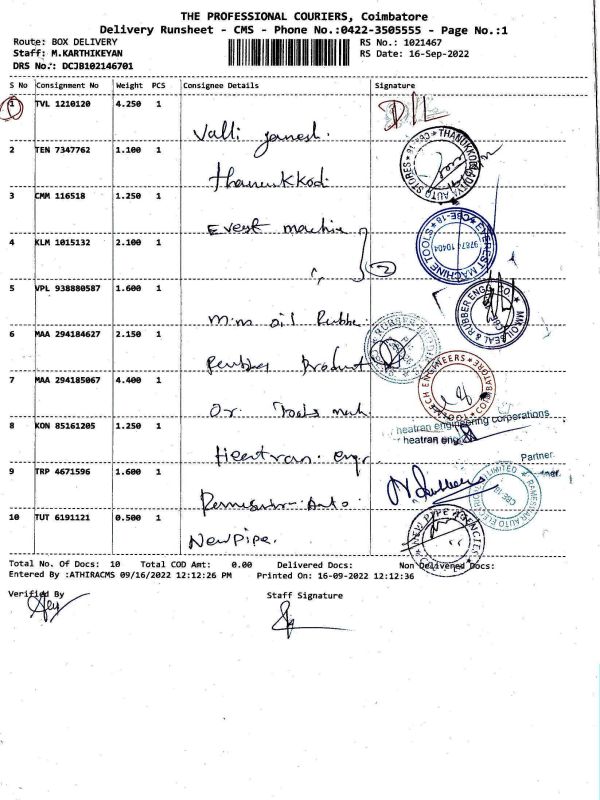 THE PROFESSIONAL COURIERS, Coimbatore
Delivery Runsheet - CMS - Phone No.:0422-3505555 - Page No.:1
Route: BOX DELIVERY RS No.: 1021467
Staff: M.KARTHIKEYAN RS Date: 16-Sep-2022
DRS No.: DCJB102146701
S No Consignment No Weight PCS Consignee Details Signature
1 TVL 1210120 4.250 1 D/L
Valli ganesh.
2 TEN 7347762 1.100 1
Thanukkodi
3 CMM 116518 1.250 1
Everest machine
4 KLM 1015132 2.100 1
" 2
5 VPL 938880587 1.600 1
M.M oil Rubber
6 MAA 294184627 2.150 1
Rubber Product
7 MAA 294185067 4.400 1
Tools
8 KON 85161205 1.250 1
heatran engineering corporations
heatran eng
Heatran. engr
Partner.
9 TRP 4671596 1.600 1
Rameswar Auto
10 TUT 6191121 0.500 1
New pipe.
THANUKKODI
AUTO STORES
CBE-18
EVEREST MACHINE TOOLS
CBE-18
97874 10404
OIL SEAL & RUBBER ENGG. CO.
RUBBER
ENGINEERS
RAMESWAR AUTO ELEC
LIMITED
CBE-18
NEW PIPE AGENCIES
Total No. Of Docs: 10 Total COD Amt: 0.00 Delivered Docs: Non Delivered Docs:
Entered By :ATHIRACMS 09/16/2022 12:12:26 PM Printed On: 16-09-2022 12:12:36
Verified By Staff Signature